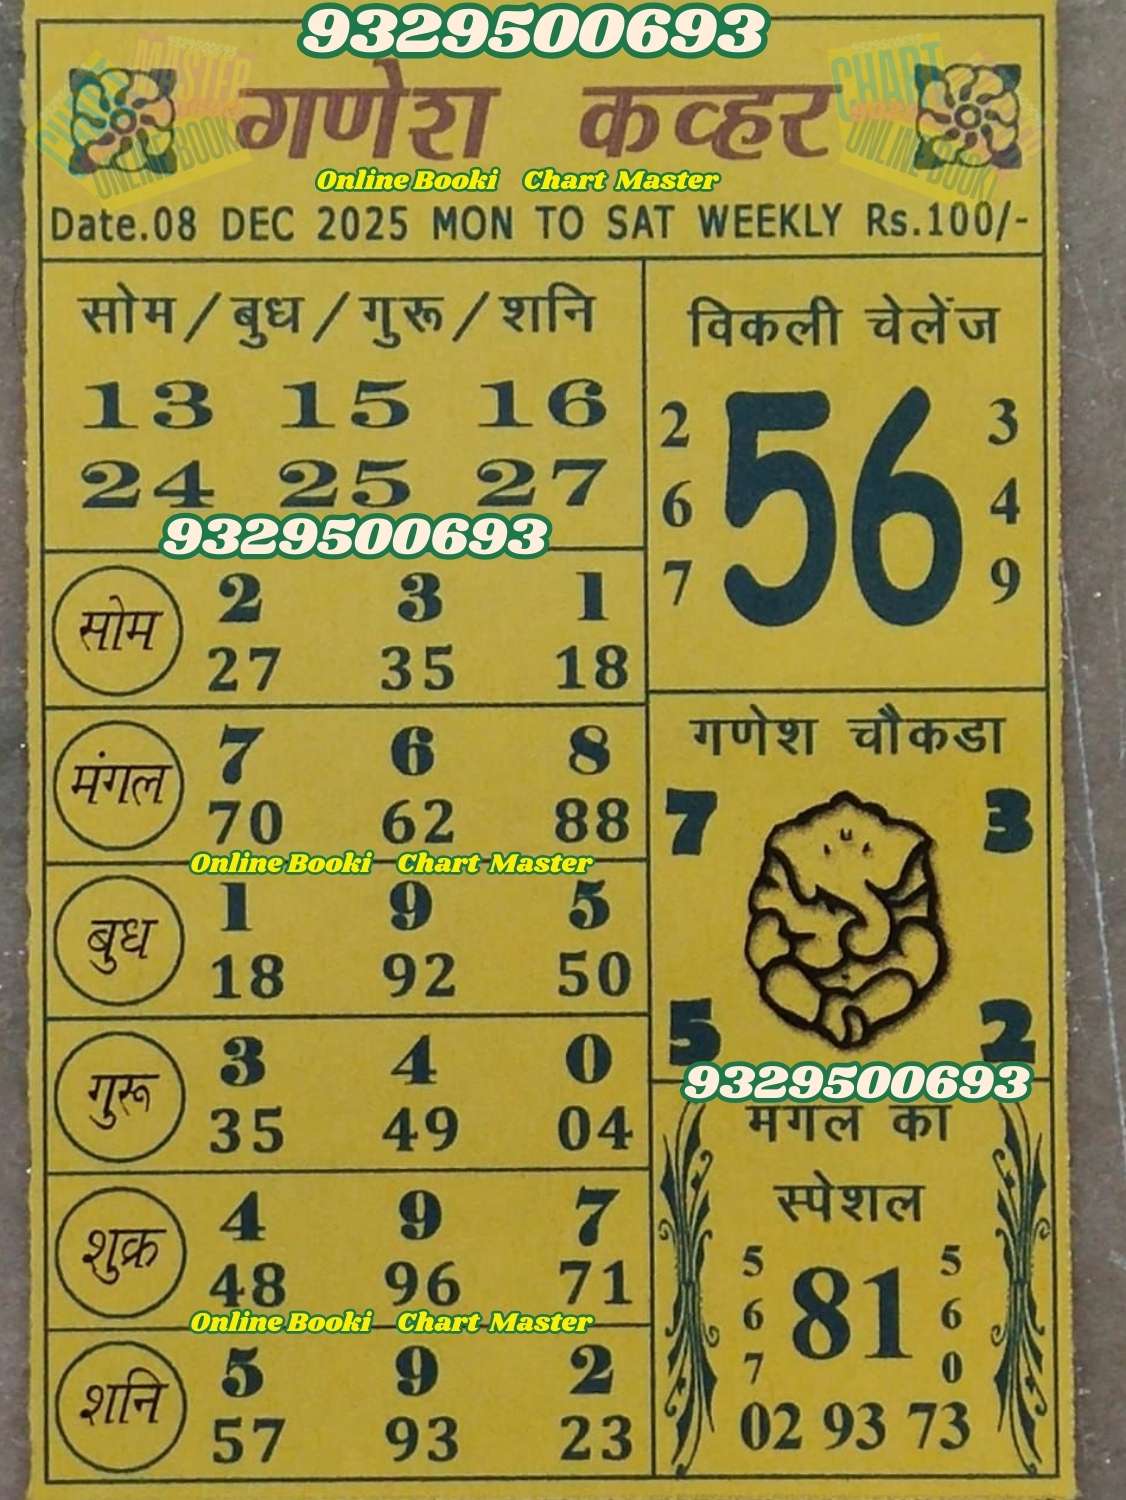 9329500693
गणेश कव्हर
CHART MASTER ONLINE BOOKI
CHART ONLINE BOOKI
Online Booki Chart Master
Date.08 DEC 2025 MON TO SAT WEEKLY Rs.100/-
सोम/बुध/गुरू/शनि
13 15 16
24 25 27
9329500693
विकली चेलेंज
2 3
56
6 4
7 9
सोम
2 3 1
27 35 18
मंगल
7 6 8
70 62 88
Online Booki Chart Master
बुध
1 9 5
18 92 50
गुरू
3 4 0
35 49 04
शुक्र
4 9 7
48 96 71
Online Booki Chart Master
शनि
5 9 2
57 93 23
गणेश चौकडा
7 3
5 2
9329500693
मंगल का
स्पेशल
5 5
6 81 6
7 0
02 93 73